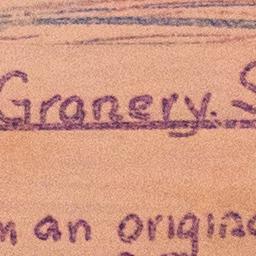 Granery. S
an origina